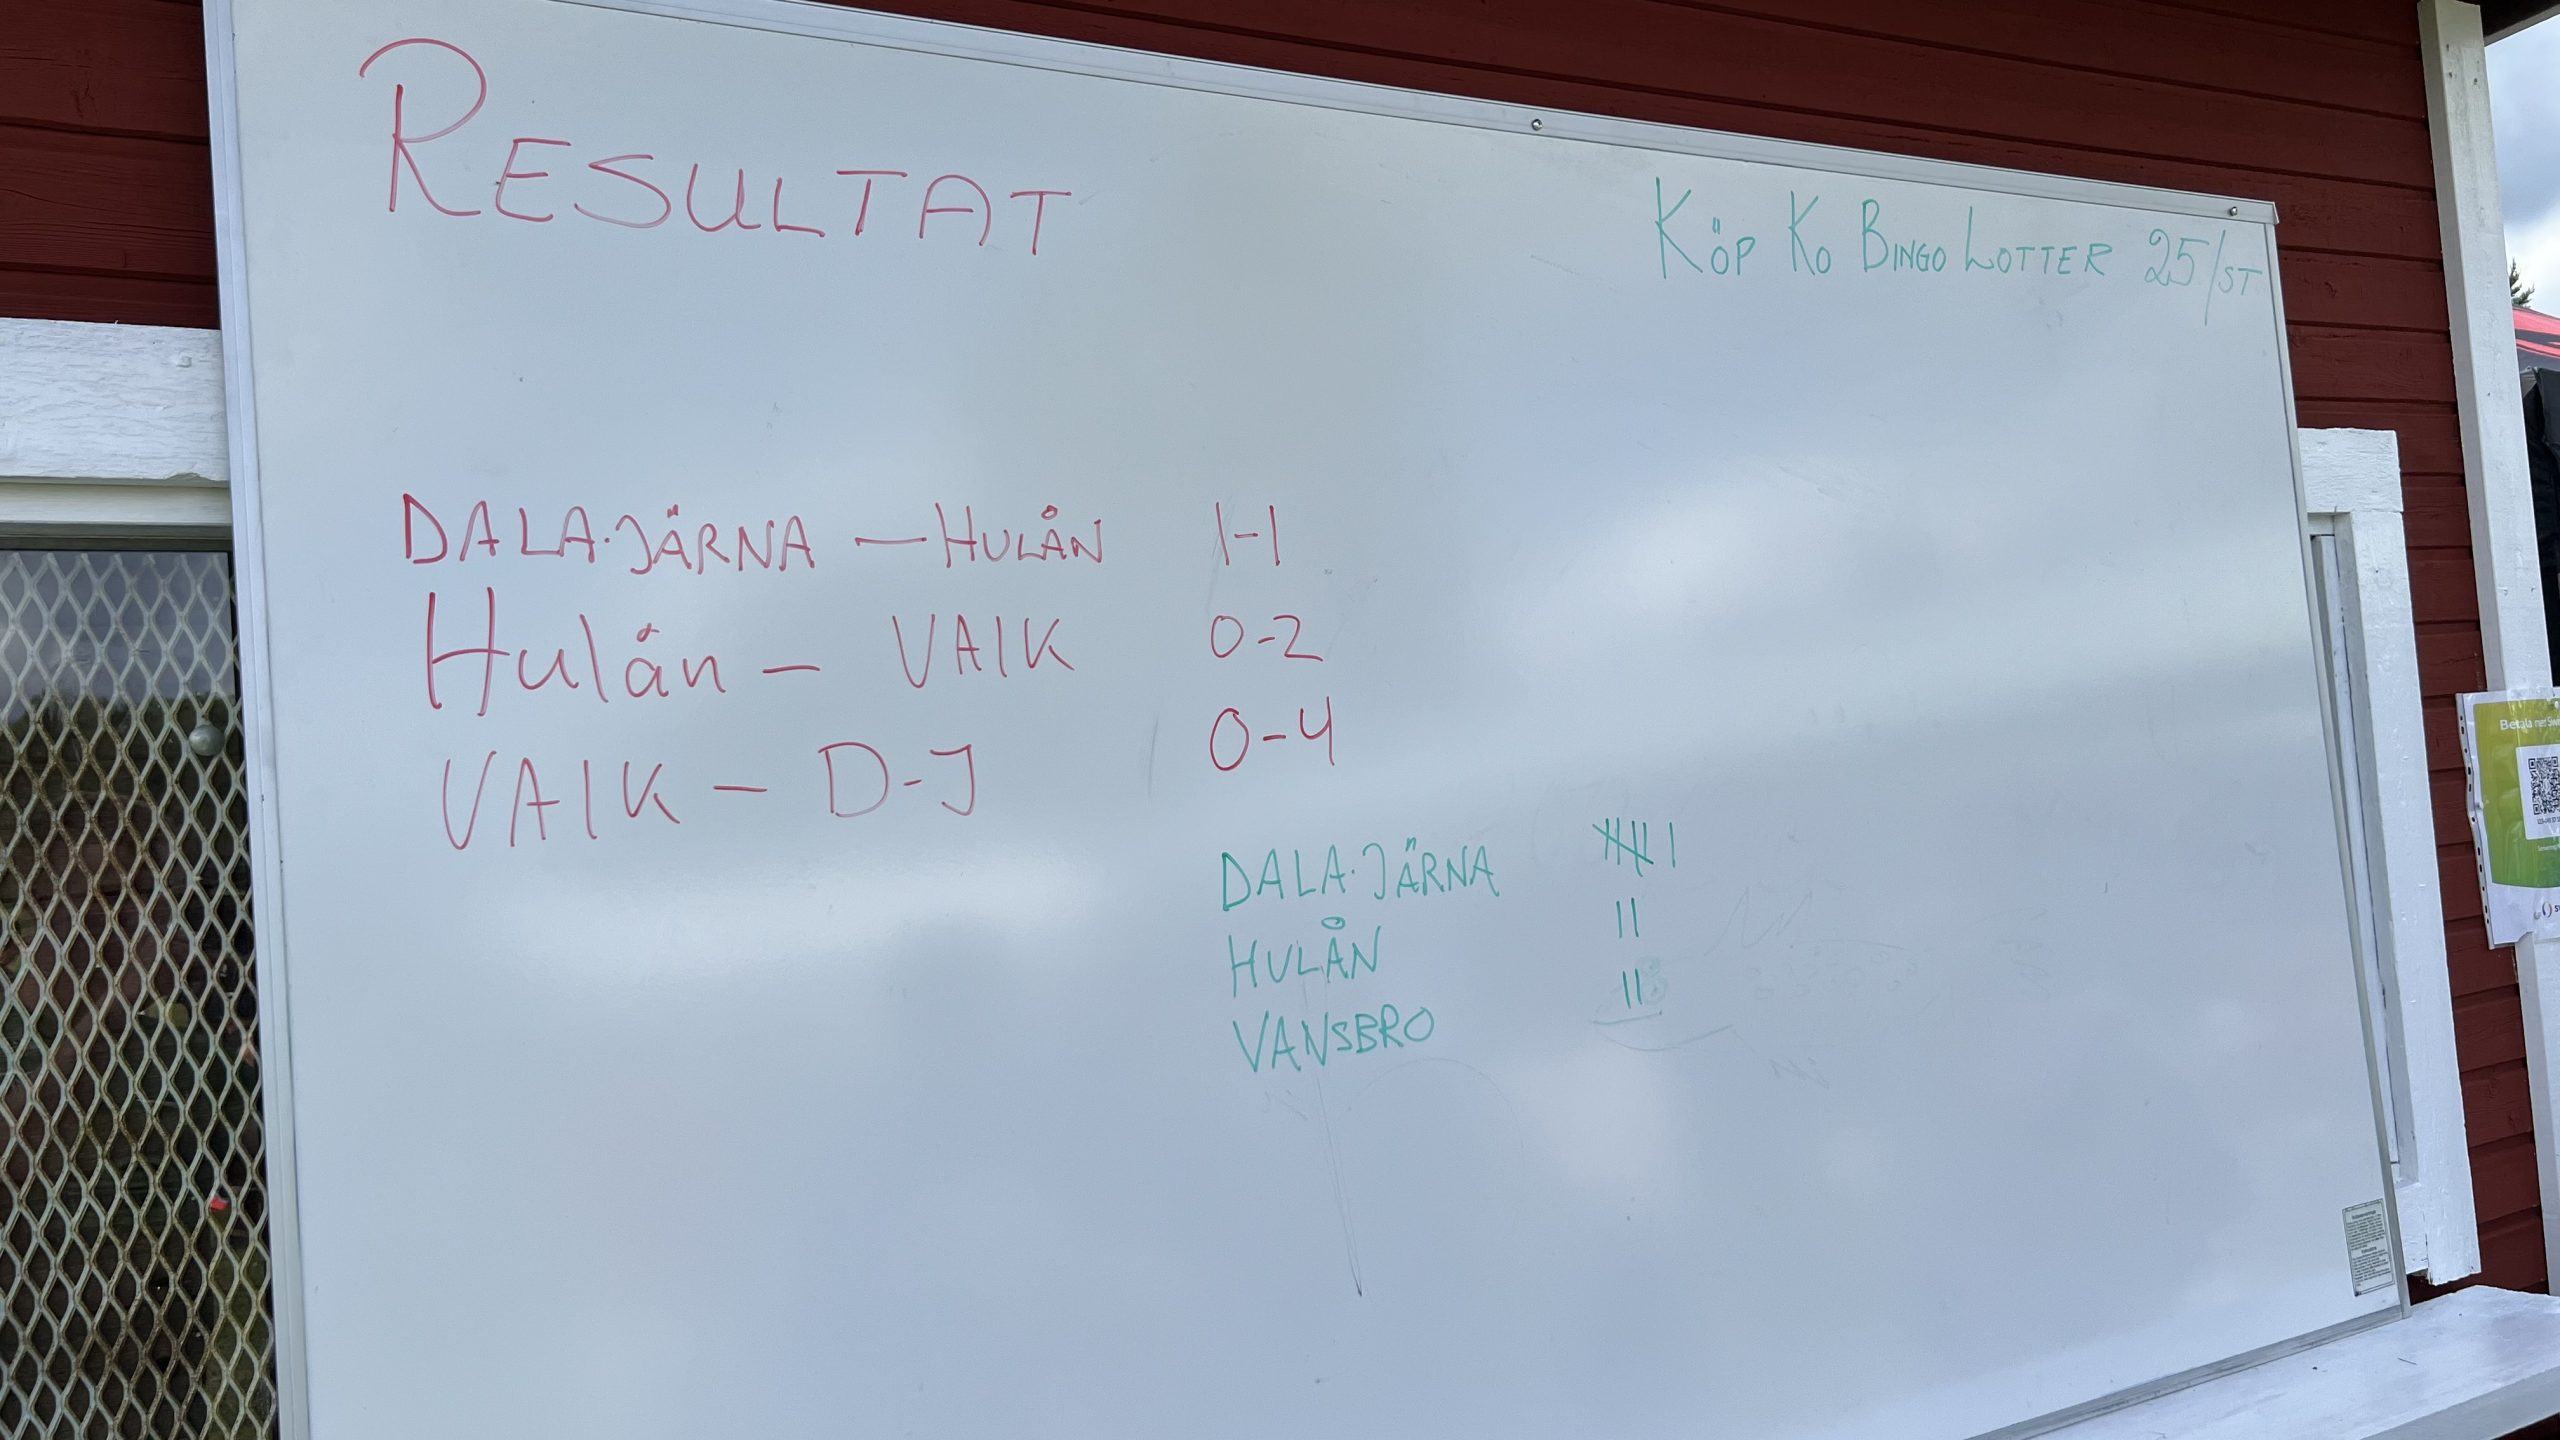 RESULTAT
KÖP KO BINGO LOTTER 25/ST
DALA-JÄRNA — HULÅN 1-1
Hulån - VAIK 0-2
VAIK - D-J 0-4
DALA-JÄRNA |||| |
HULÅN ||
VANSBRO ||
Betala med Swi